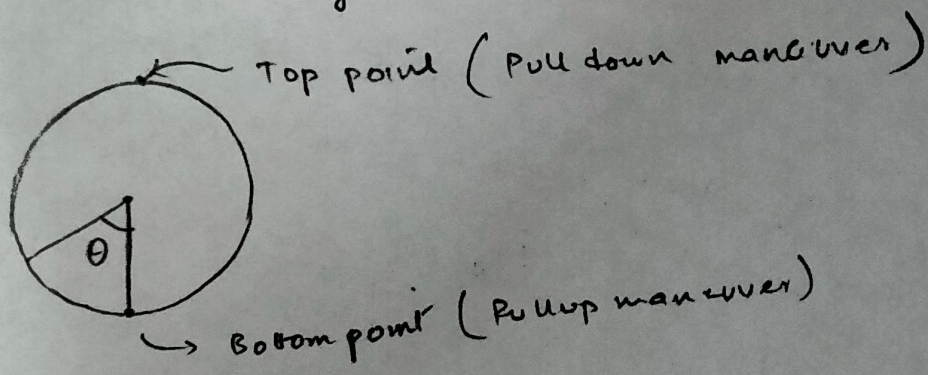 Top point ( Pull down maneuver )
θ
Bottom point ( Pullup maneuver )